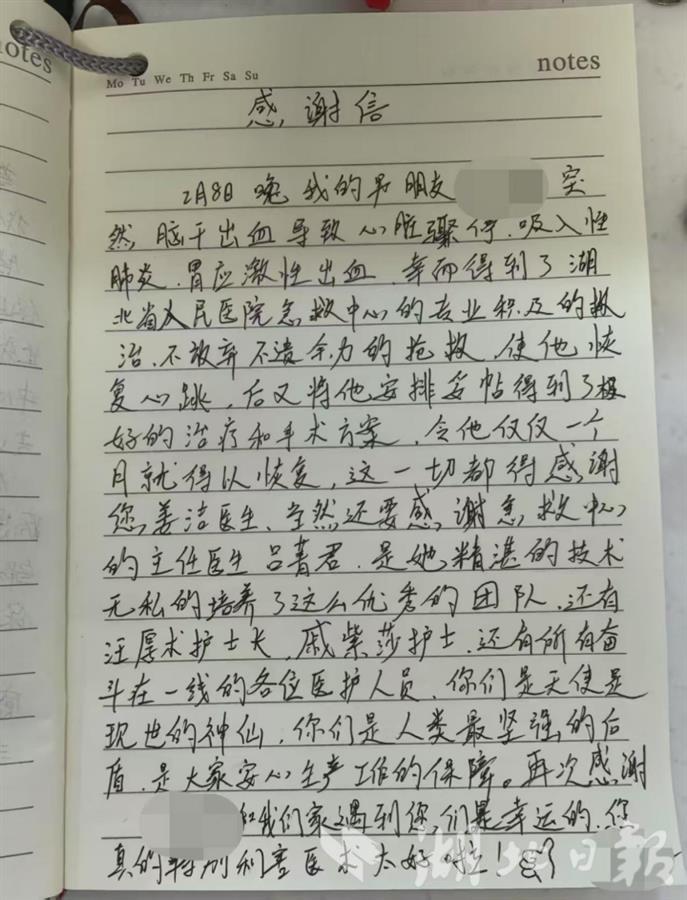 notes
Mo Tu We Th Fr Sa Su
notes
感谢信
2月8日晚我的男朋友 突
然脑干出血导致心脏骤停、吸入性
肺炎、胃应激性出血,幸而得到了湖
北省人民医院急救中心的专业积及的救
治,不放弃不遗余力的抢救,使他恢
复心跳,后又将他安排妥帖得到了极
好的治疗和手术方案,令他仅仅一个
月就得以恢复,这一切都得感谢
您,姜洁医生,当然还要感谢急救中心
的主任医生吕菁君,是她精湛的技术
无私的培养了这么优秀的团队,还有
汪厚术护士长,戚紫莎护士,还有所有奋
斗在一线的各位医护人员,你们是天使是
现世的神仙,你们是人类最坚强的后
盾,是大家安心生产工作的保障。再次感谢
和我们家遇到你们是幸运的,您
真的特别利害医术太好啦!
湖北日报